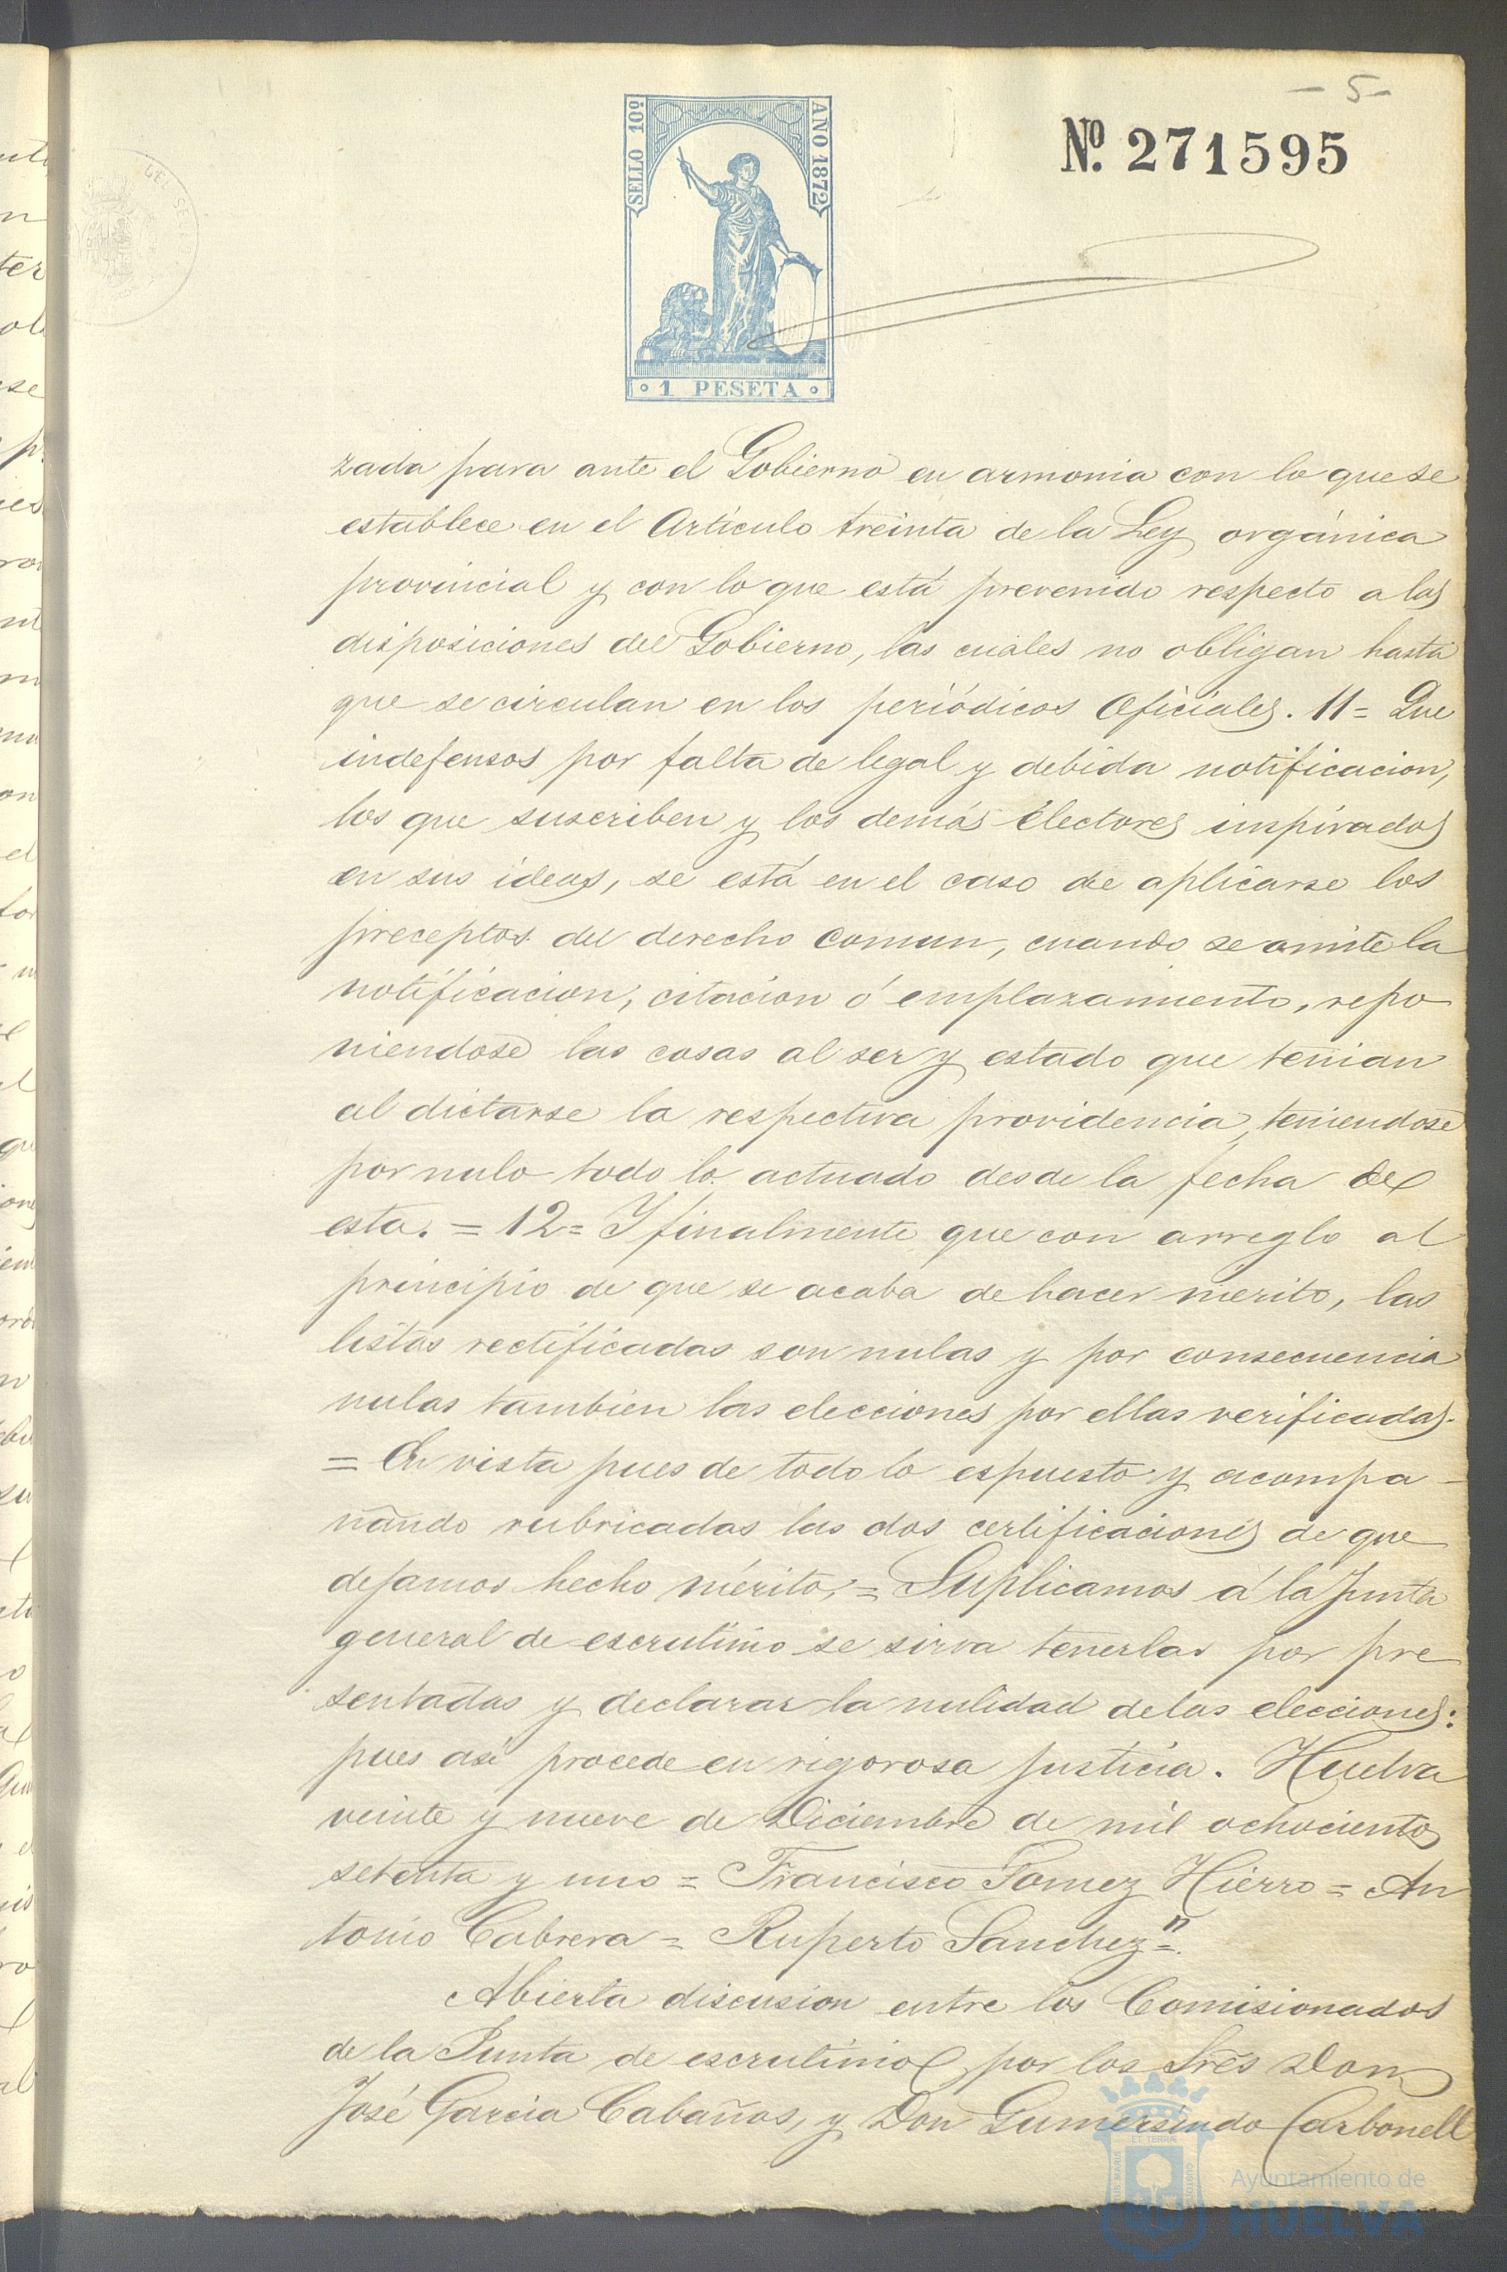 - 5 -
Nº. 271595
SELLO 10º
AÑO 1872
1 PESETA
zada para ante el Gobierno en armonia con lo que se
establece en el Artículo treinta de la Ley orgánica
provincial y con lo que está prevenido respecto a las
disposiciones del Gobierno, las cuales no obligan hasta
que se circulan en los periódicos Oficiales. 11 = Que
indefensos por falta de legal y debida notificacion,
los que suscriben y los demás électores inspirados
en sus ideas, se está en el caso de aplicarse los
preceptos del derecho comun, cuando se omite la
notificacion, citacion ó emplazamiento, repo
niendose las cosas al ser y estado que tenian
al dictarse la respectiva providencia, teniendose
por nulo todo lo actuado desde la fecha de
esta. = 12 = Y finalmente que con arreglo al
principio de que se acaba de hacer mérito, las
listas rectificadas son nulas y por consecuencia
nulas tambien las elecciones por ellas verificadas.
= En vista pues de todo lo espuesto y acompa -
ñando rubricadas las dos certificaciones de que
dejamos hecho mérito, = Suplicamos á la Junta
general de escrutinio se sirva tenerlas por pre
sentadas y declarar la nulidad de las elecciones:
pues asi procede en rigorosa justicia. Huelva
veinte y nueve de Diciembre de mil ochocientos
setenta y uno = Francisco Gomez Hierro = An
tonio Cabrera = Ruperto Sanchez = ".
Abierta discusion entre los Comisionados
de la Junta de escrutinio por los Sres Don
José Garcia Cabañas, y Don Gumersindo Carbonell
Ayuntamiento de
HUELVA